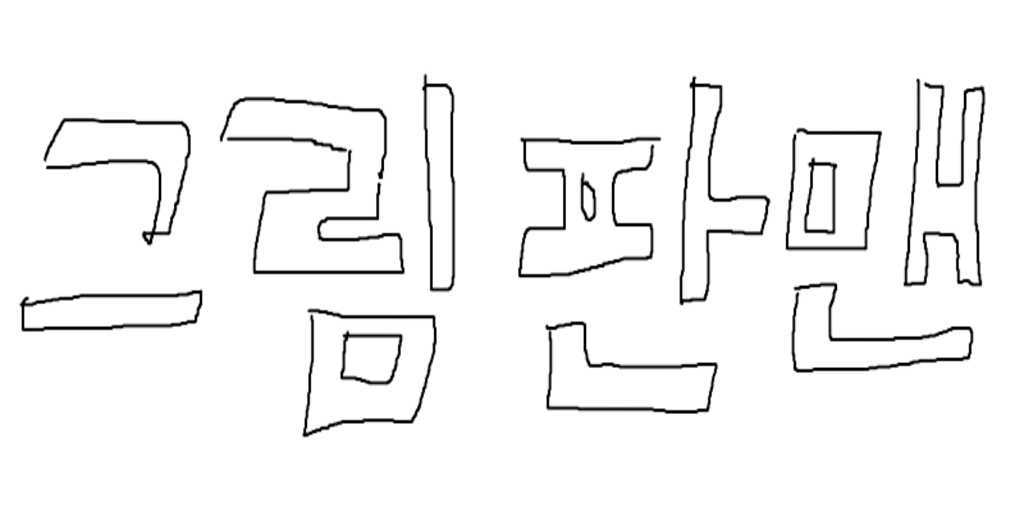 그림판맨